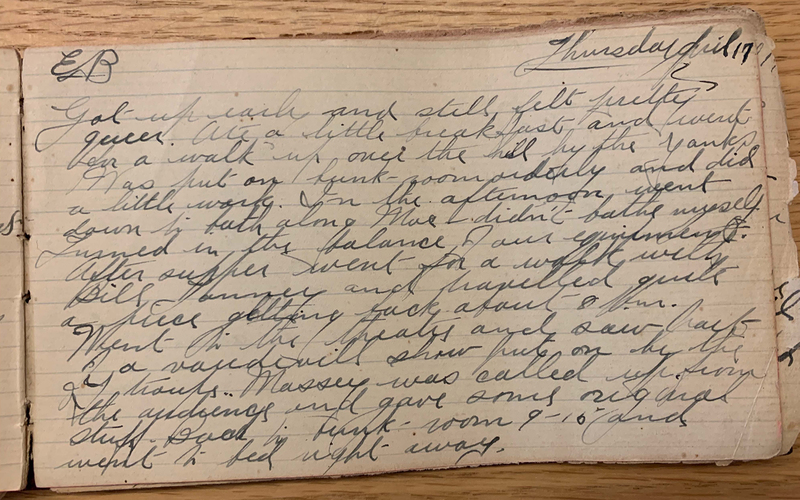 EB Thursday April 17
Got up early and still felt pretty
queer. Ate a little breakfast and went
for a walk up over the hill by the Yanks
Was put on bunk-room orderly and did
a little work. In the afternoon went
down to bath along Mac - didn't bathe myself.
Turned in the balance of our equipment.
After supper went for a walk with
Bill and travelled quite
a piece getting back about 8 P.m.
Went to the theatre and saw part
of a vaudevill show put on by the
troups. Massey was called up from
the audience and gave some original
stuff. Back to bunk-room 9-15 and
went to bed right away.